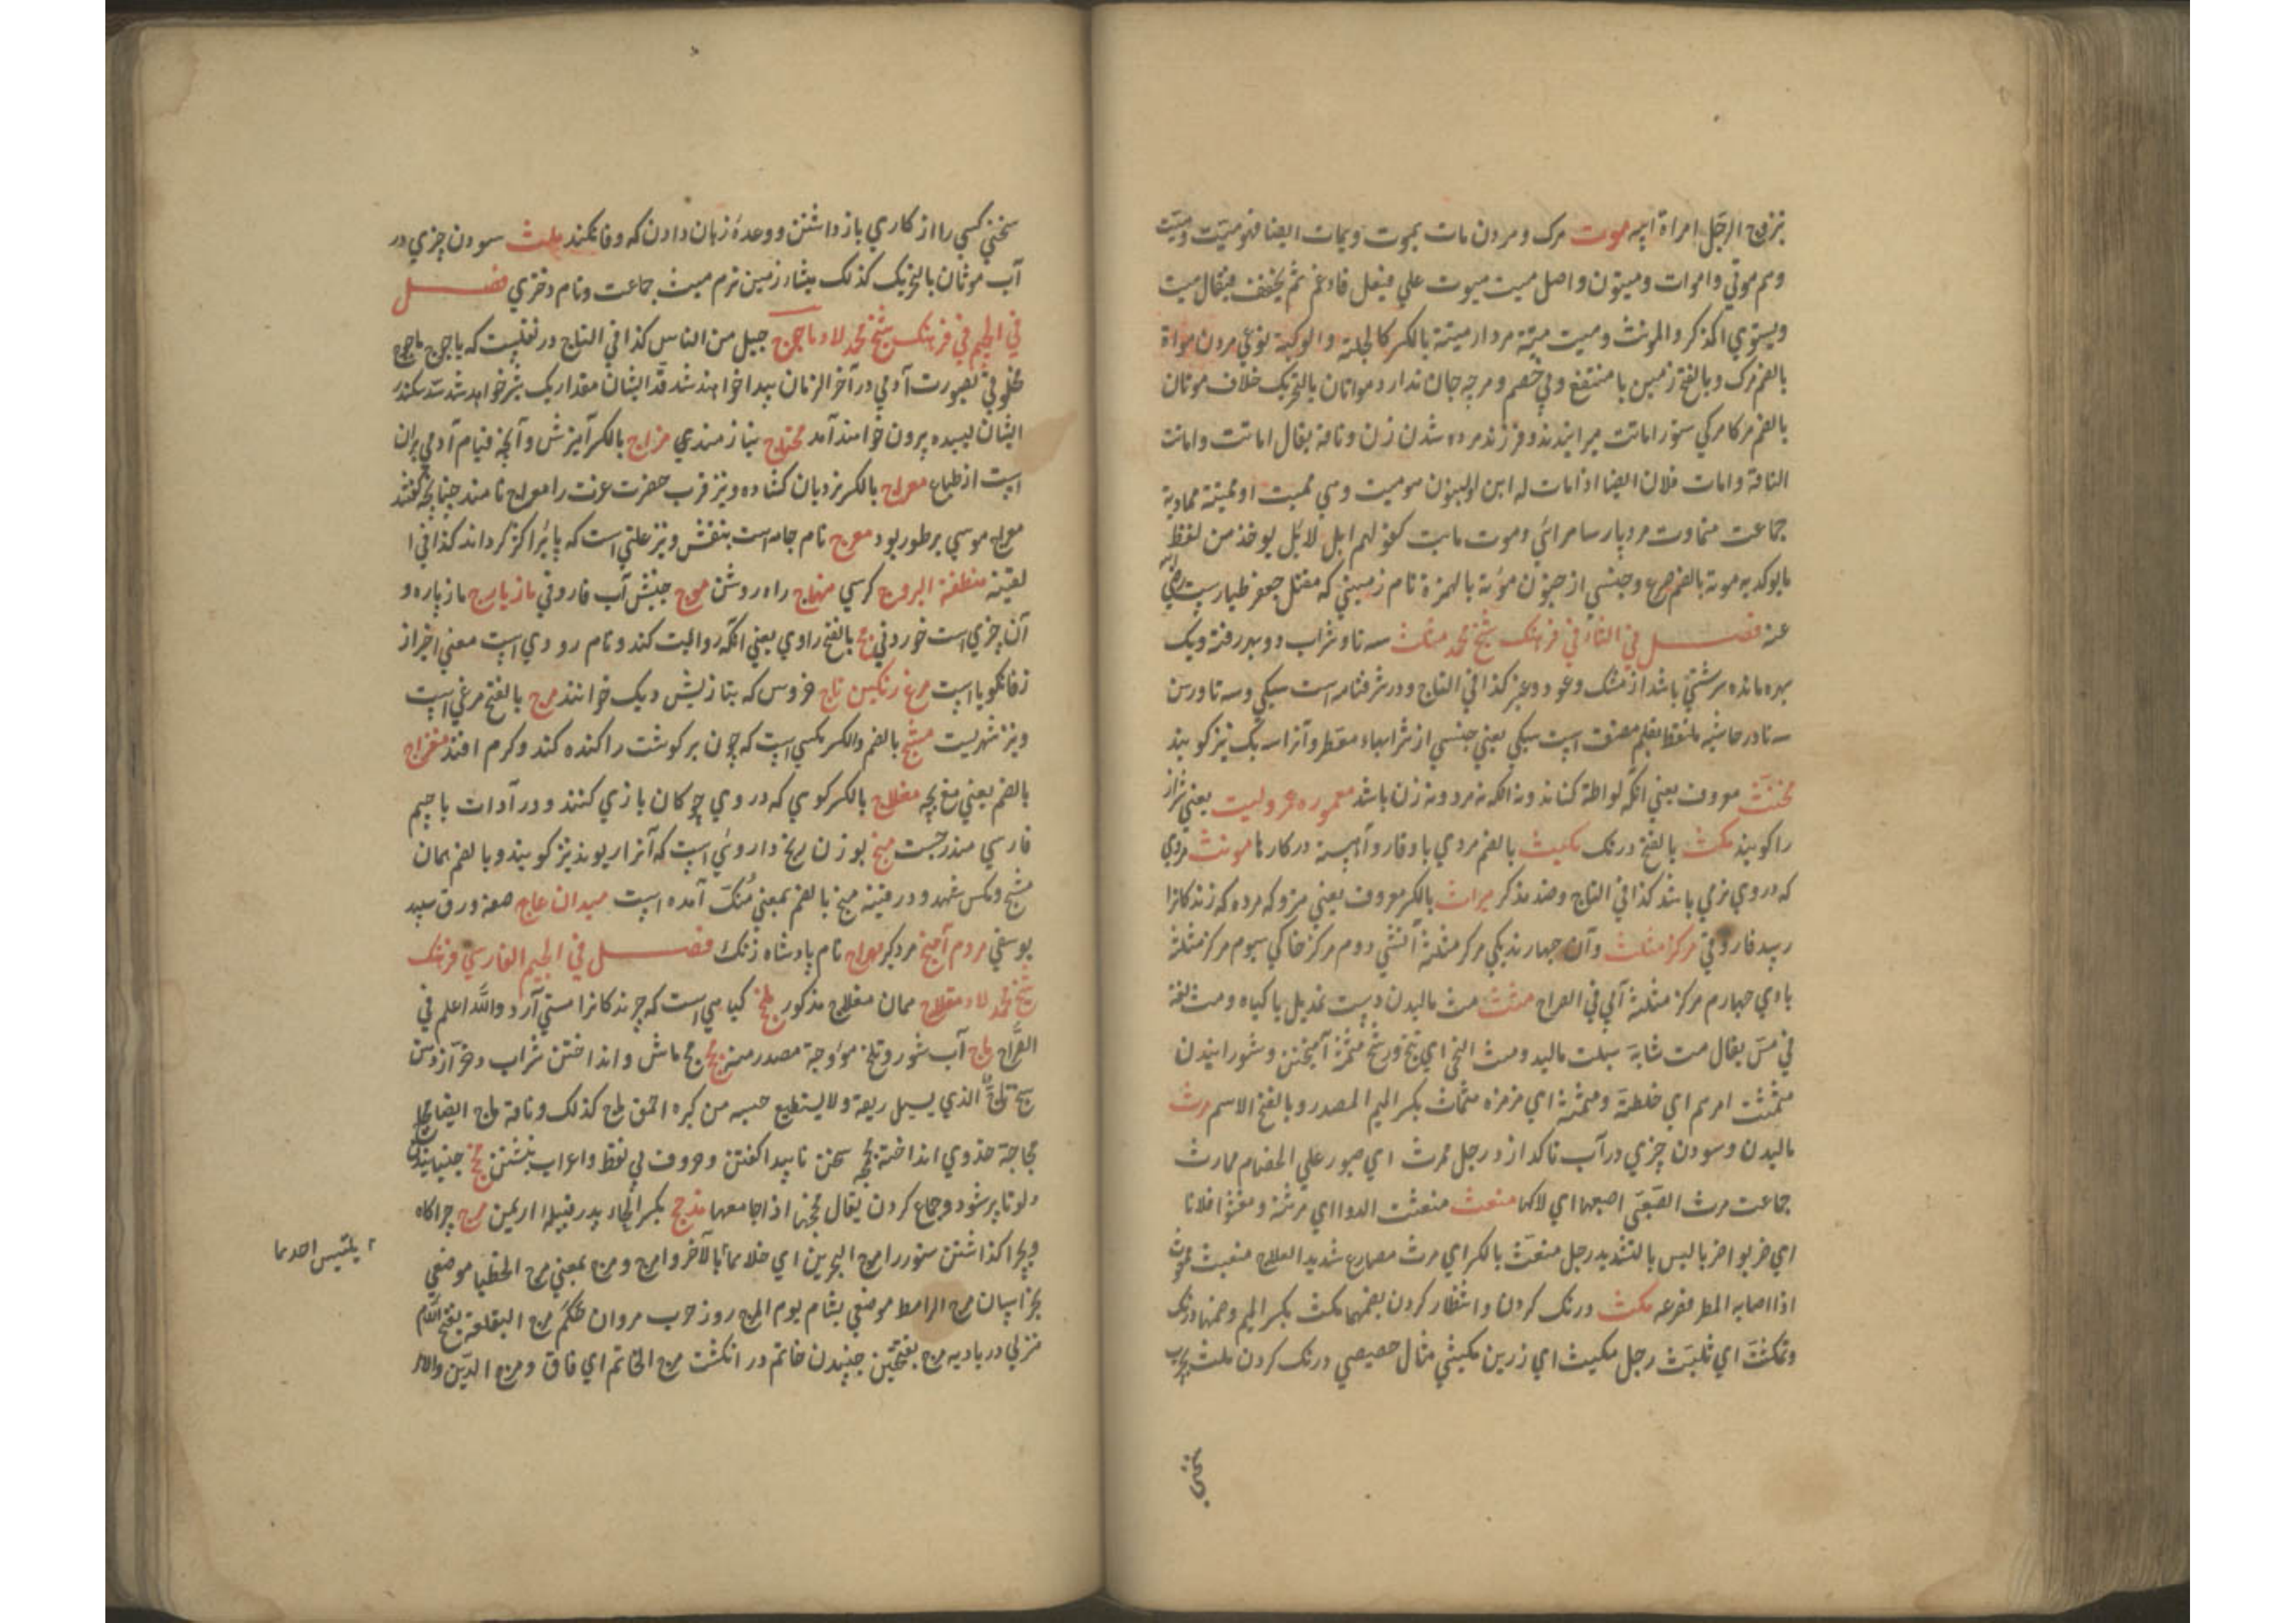 یتزوج الرجل امراة ابیه موت مرک و مردن مات یموت و یمات ایضا فهو میّت و میت
و هم موتی و اموات و میتون و اصل میت میوت علی فیعل فادغم ثم یخفف فیقال میت
و یستوی المذکر و المونث و میت میتة مردار میتة بالکسر کالجلسة و الرکبة نوعی مردن مواة
بالضم مرک و بالفتح زمین با منتفع و بی خصم و هرچه جان ندارد موتان بالتحریک خلاف موتان
بالضم مرکامرکی ستور اماتت میرانیدن و فرزند مرده شدن زن و ناقة یقال اماتت و اماتت
الناقة و امات فلان ایضا اذا مات له ابن او لبنون هو ممیت و هی ممیت او ممیتة مماویة
جماعت متماوت مرد پارسا مرائی و موت مایت کقولهم لیل لایل یوخذ من لفظ
ما یوکد به موتة بالضم صرع و جنسی از جنون مؤتة بالهمزة نام زمینی که مقتل جعفر طیارست رضی الله
عنه فصل فی الثاء فی فرهنک شیخ محمد مثلث سه تا و شراب دو بهر رفته و یک
بهره مانده سرشتی باشد از مشک و عود و عنبر کذا فی التاج و در شرفنامه است سیکی و سه تا و رسن
سه تا در حاشیه ملتقط بقلم مصنف است سیکی یعنی جنسی از شرابهاء مقطر و آنرا سه یک نیز کویند
مخنث معروف یعنی آنکه لواطة کناند و نه آنکه نه مرد و نه زن باشد معموره عرولیت یعنی شراز
را کویند مکث بالفتح درنک مکیث بالضم مردی با وقار و آهسته در کارها مونث مردی
که در وی نرمی باشد کذا فی التاج و ضد مذکر میراث بالکسر معروف یعنی متروکه مرده که زندکانرا
رسد فاروقی مرکز مثلث و آن چهارند یکی مرکز مثلثة آتشی دوم مرکز خاکی سیوم مرکز مثلثة
بادی چهارم مرکز مثلثة آبی فی الصراح ممثث مث مالیدن دست بمندیل یا کیاه و مث لغة
فی مس یقال مث شابة سبلت مالید و مث النحی ای نتح و رشح مثمثة آمیختن و شورانیدن
مثمثت امرهم ای خلطته و مثمثه ای مزمزه مثماث بکسر المیم المصدر و بالفتح الاسم مرث
مالیدن و سودن چیزی در آب تا کدازد رجل ممرث ای صبور علی الخصام ممارث
جماعت مرث الصبی اصبعها ای لاکها مغث مغثت الدوا ای مرثته و مغثوا فلانا
ای ضربوا ضربا لیس بالشدید رجل مغث بالکسر ای مرث مصارع شدید العلاج مغیث ممغوث
اذا اصابه المطر فصرعه مکث درنک کردن و انتظار کردن بضمهما مکث بکسر المیم و ضمها درنک
و تمکث ای تلبث رجل مکیث ای رزین مکیثی مثال خصیصی درنک کردن ملث بچرب
سخنی
سخنی کسی را از کاری باز داشتن و وعدهٔ زبان دادن که وفا نکند ملث سودن چیزی در
آب موثان بالتحریک کذلک میثاء زمین نرم میث جماعت و نام دختری فصل
فی الجیم فی فرهنک شیخ محمد لاد ماجوج جیل من الناس کذا فی التاج در تفلیست که یاجوج ماجوج
مخلوقی بصورت آدمی در آخر الزمان پیدا خواهند شد قد ایشان مقدار یک شبر خواهد شد سد سکندر
ایشان لیسیده بیرون خواهند آمد محتاج نیازمندی مزاج بالکسر آمیزش و آنچه قیام آدمی بران
است از طبایع معراج بالکسر نردبان کشاده و نیز قرب حضرت عزت را معراج نامند چنانچه کفتند
معراج موسی بر طور بود معرج نام جامه است بنقش و نیز علتی است که پای را کژ کرداند کذا فی ا
لقنیة منطقة البروج کرسی منهاج راه روشن موج جنبش آب فاروقی مازیارج مازیاره و
آن چیزی است خوردنی مج بالفتح راوی یعنی آنکه روایت کند و نام رودی است معنی اخیر از
زفانکویا است مرغ رنکین تاج خروس که بتازیش دیک خوانند مرج بالفتح مرغی است
و نیز شهریست مشج بالضم و الکسر مکسی است که چون بر کوشت راکنده کند و کرم افتد مغزاج
بالضم یعنی مغ بچه مغلاج بالکسر کوی که در وی جوکان بازی کنند و در آدات با جیم
فارسی مندرجست منج بوزن رنج داروئی است که آنرا ریوند نیز کویند و بالضم همان
مشج و مکس شهد و در قنیة منج بالضم بمعنی مُنک آمده است میدان عاج صفة ورق سپید
یوسفی مردم آمیخ مردکیر مهراج نام پادشاه زنک فصل فی الجیم الفارسی فرهنک
شیخ محمد لاد مغلاج همان مغلاج مذکور ملج کیاهی است که چرندکانرا مستی آرد و الله اعلم فی
الصراح ماج آب شور و تلخ موٴوجة مصدر منه مج مج ماش و انداختن شراب و جز آن از دهن
مج ماج الذی یسیل ریقه و لا یستطیع حبسه من کبره احمق ماج کذلک و ناقة ماج ایضا
مجاجة خدوی انداخته مجمجه سخن ناپیدا کفتن و حروف بی نقط و اعراب نبشتن مخج جنبانیدن
دلو تا پر شود و جماع کردن یقال مخجها اذا جامعها مذحج بکسر الحاء پدر قبیله از یمن مرج چراکاه
و بچرا کذاشتن ستور را مرج البحرین ای خلاهما بالآخر و امرج و مرج بمعنی مرج الخطبا موضعی
بخراسان مرج الراهط موضعی بشام یوم المرج روز حرب مروان حَکَم مرج القلعة بفتح اللام
منزلی در بادیه مرج بفتحتین جنبیدن خاتم در انکشت مرج الخاتم ای فاق و مرج الدین و الامر
لا یلتبس احدهما